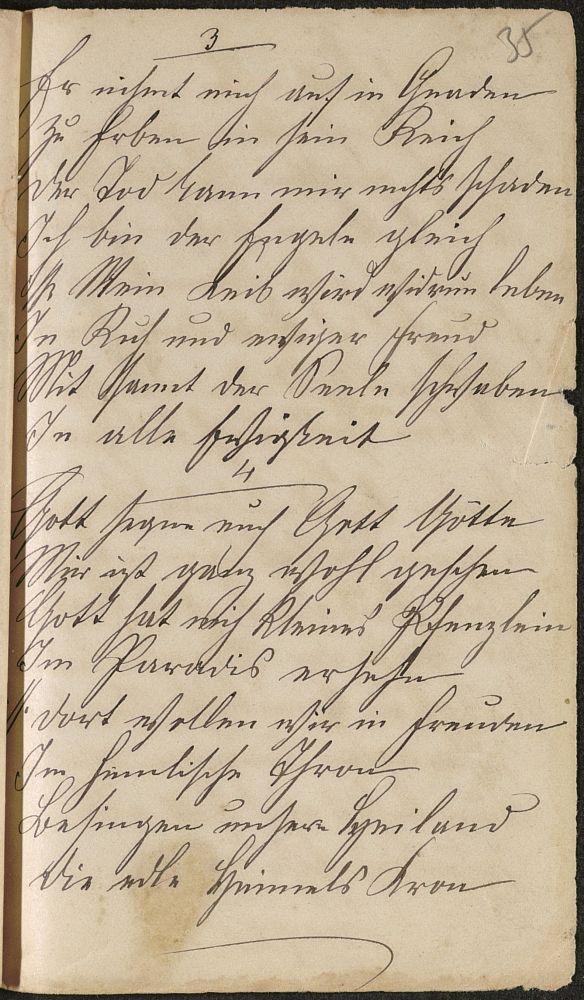 35
3
Er nihmt mich auf in Gnaden
Zu Erben in sein Reich
Der Tod kann mir nichts schaden
Ich bin den Engeln gleich
Mein Leib wird widrum leben
In Ruh und ewiger Freud
Mit samt der Seele schweben
In alle Ewigkeit
4
Gott segne euch Gott Götte
Mir ist ganz wohl geschen
Gott hat mich kleines Pflenzlein
Im Paradis ersehn
dort wollen wir in Freuden
Im himlische Thron
Besingen unsern Heiland
Die edle Himmels Kron